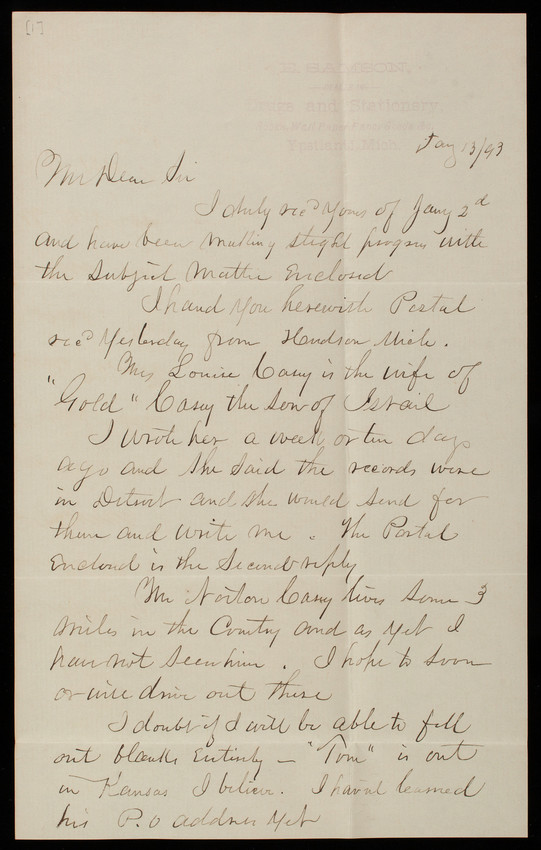 [1]
E. SAMSON,
Drugs and Stationery,
Ypsilanti, Mich.
Jany 13/93
My Dear Sir
I duly recd Yours of Jany 2d
and have been making slight progress with
the Subject Matter Enclosed
I hand You herewith Postal
recd Yesterday from Hudson Mich.
Mrs Louise Casey is the wife of
"Gold" Casey the son of Israil
I wrote her a week or ten days
ago and she said the records were
in Detroit and she would send for
them and write me. The Postal
Enclosed is the Second reply
Mr Norton Casey lives some 3
miles in the Country and as Yet I
have not seen him. I hope to soon
or will drive out there
I doubt if I will be able to fill
out blanks Entirely — "Tom" is out
in Kansas I believe. I havnt learned
his P.O address Yet